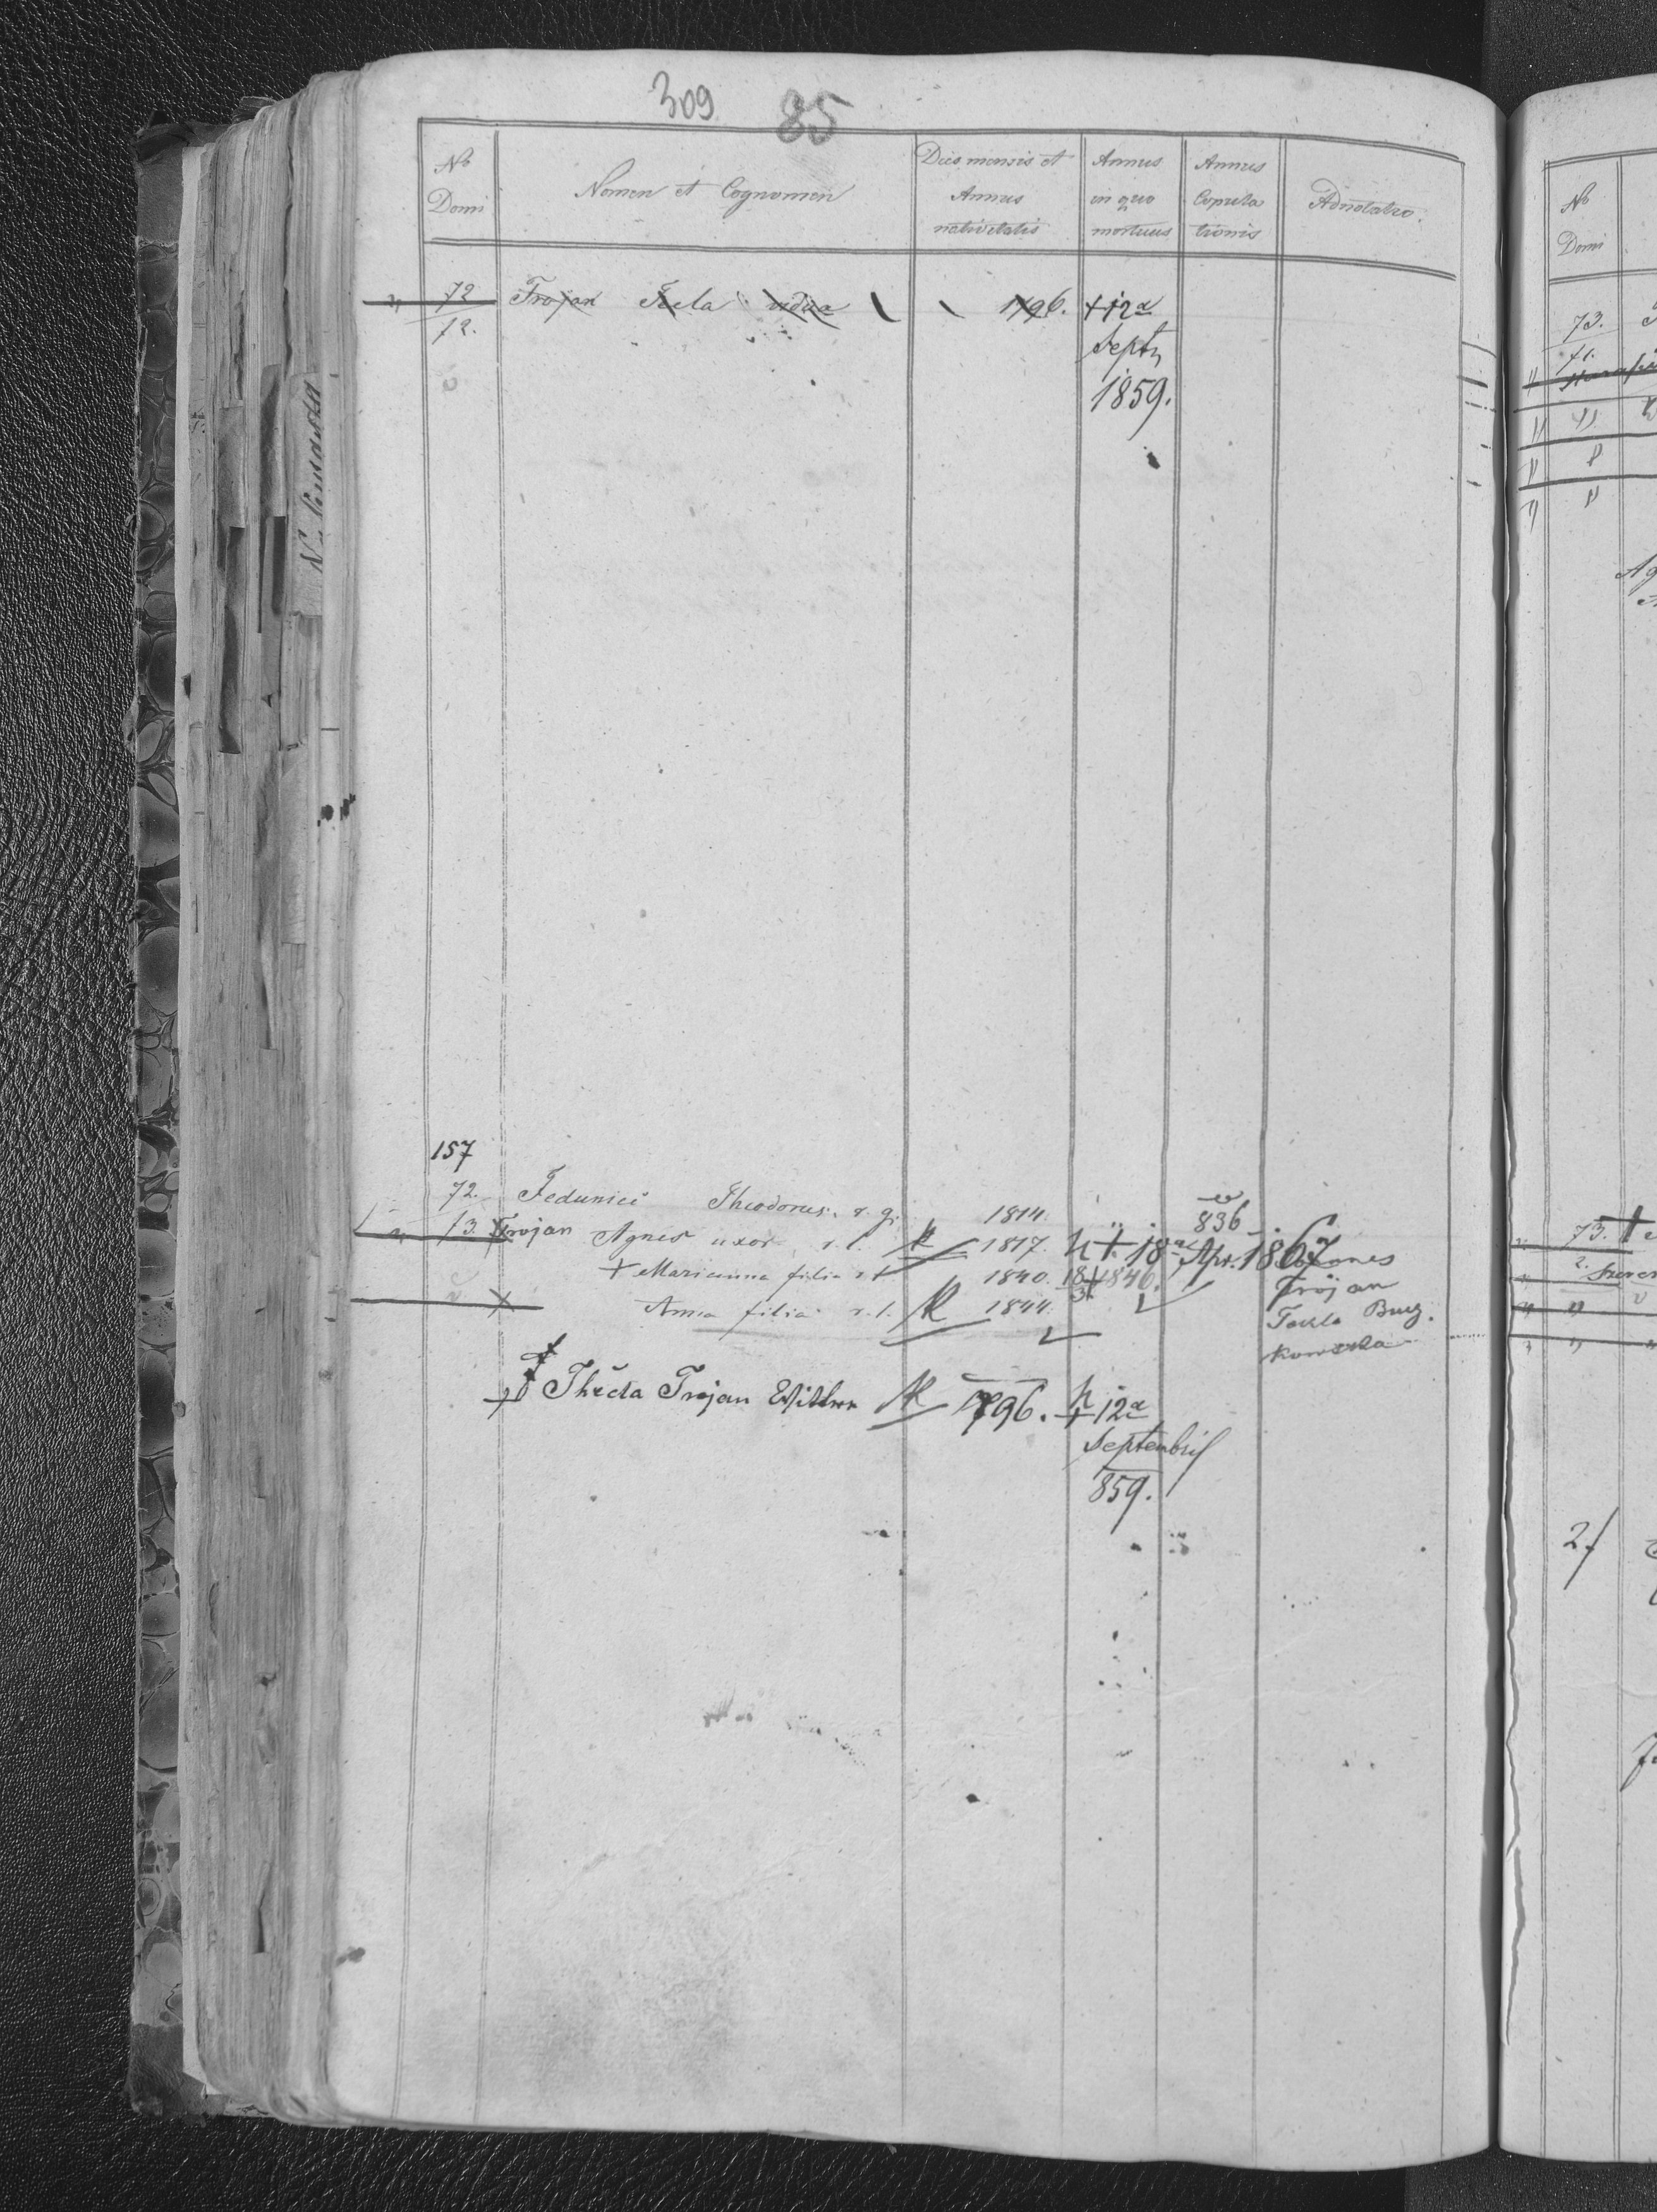 309 85
No Domi | Nomen et Cognomen | Dies mensis et Annus nativitatis | Annus in quo mortuus | Annus Copulationis | Adnotatio.
72 Trojan Tecla vidua 1796. + 12a
72. Septr
1859.
157
72. Fedunisci Theodorus. r. g. 1814. 836
13. Trojan Agnes uxor r. l. 1817. + 18a Apr. 1867 Joannes
+ Marianna filia r. l. 1840. 18 3 + 1846. Trojan
Anna filia r. l. 1844. Tekla Bucz.
kowska
Thecla Trojan Wittwe 1796. + 12a
Septembris
859.
No Domi
73.
71.
73. +
2.
2.